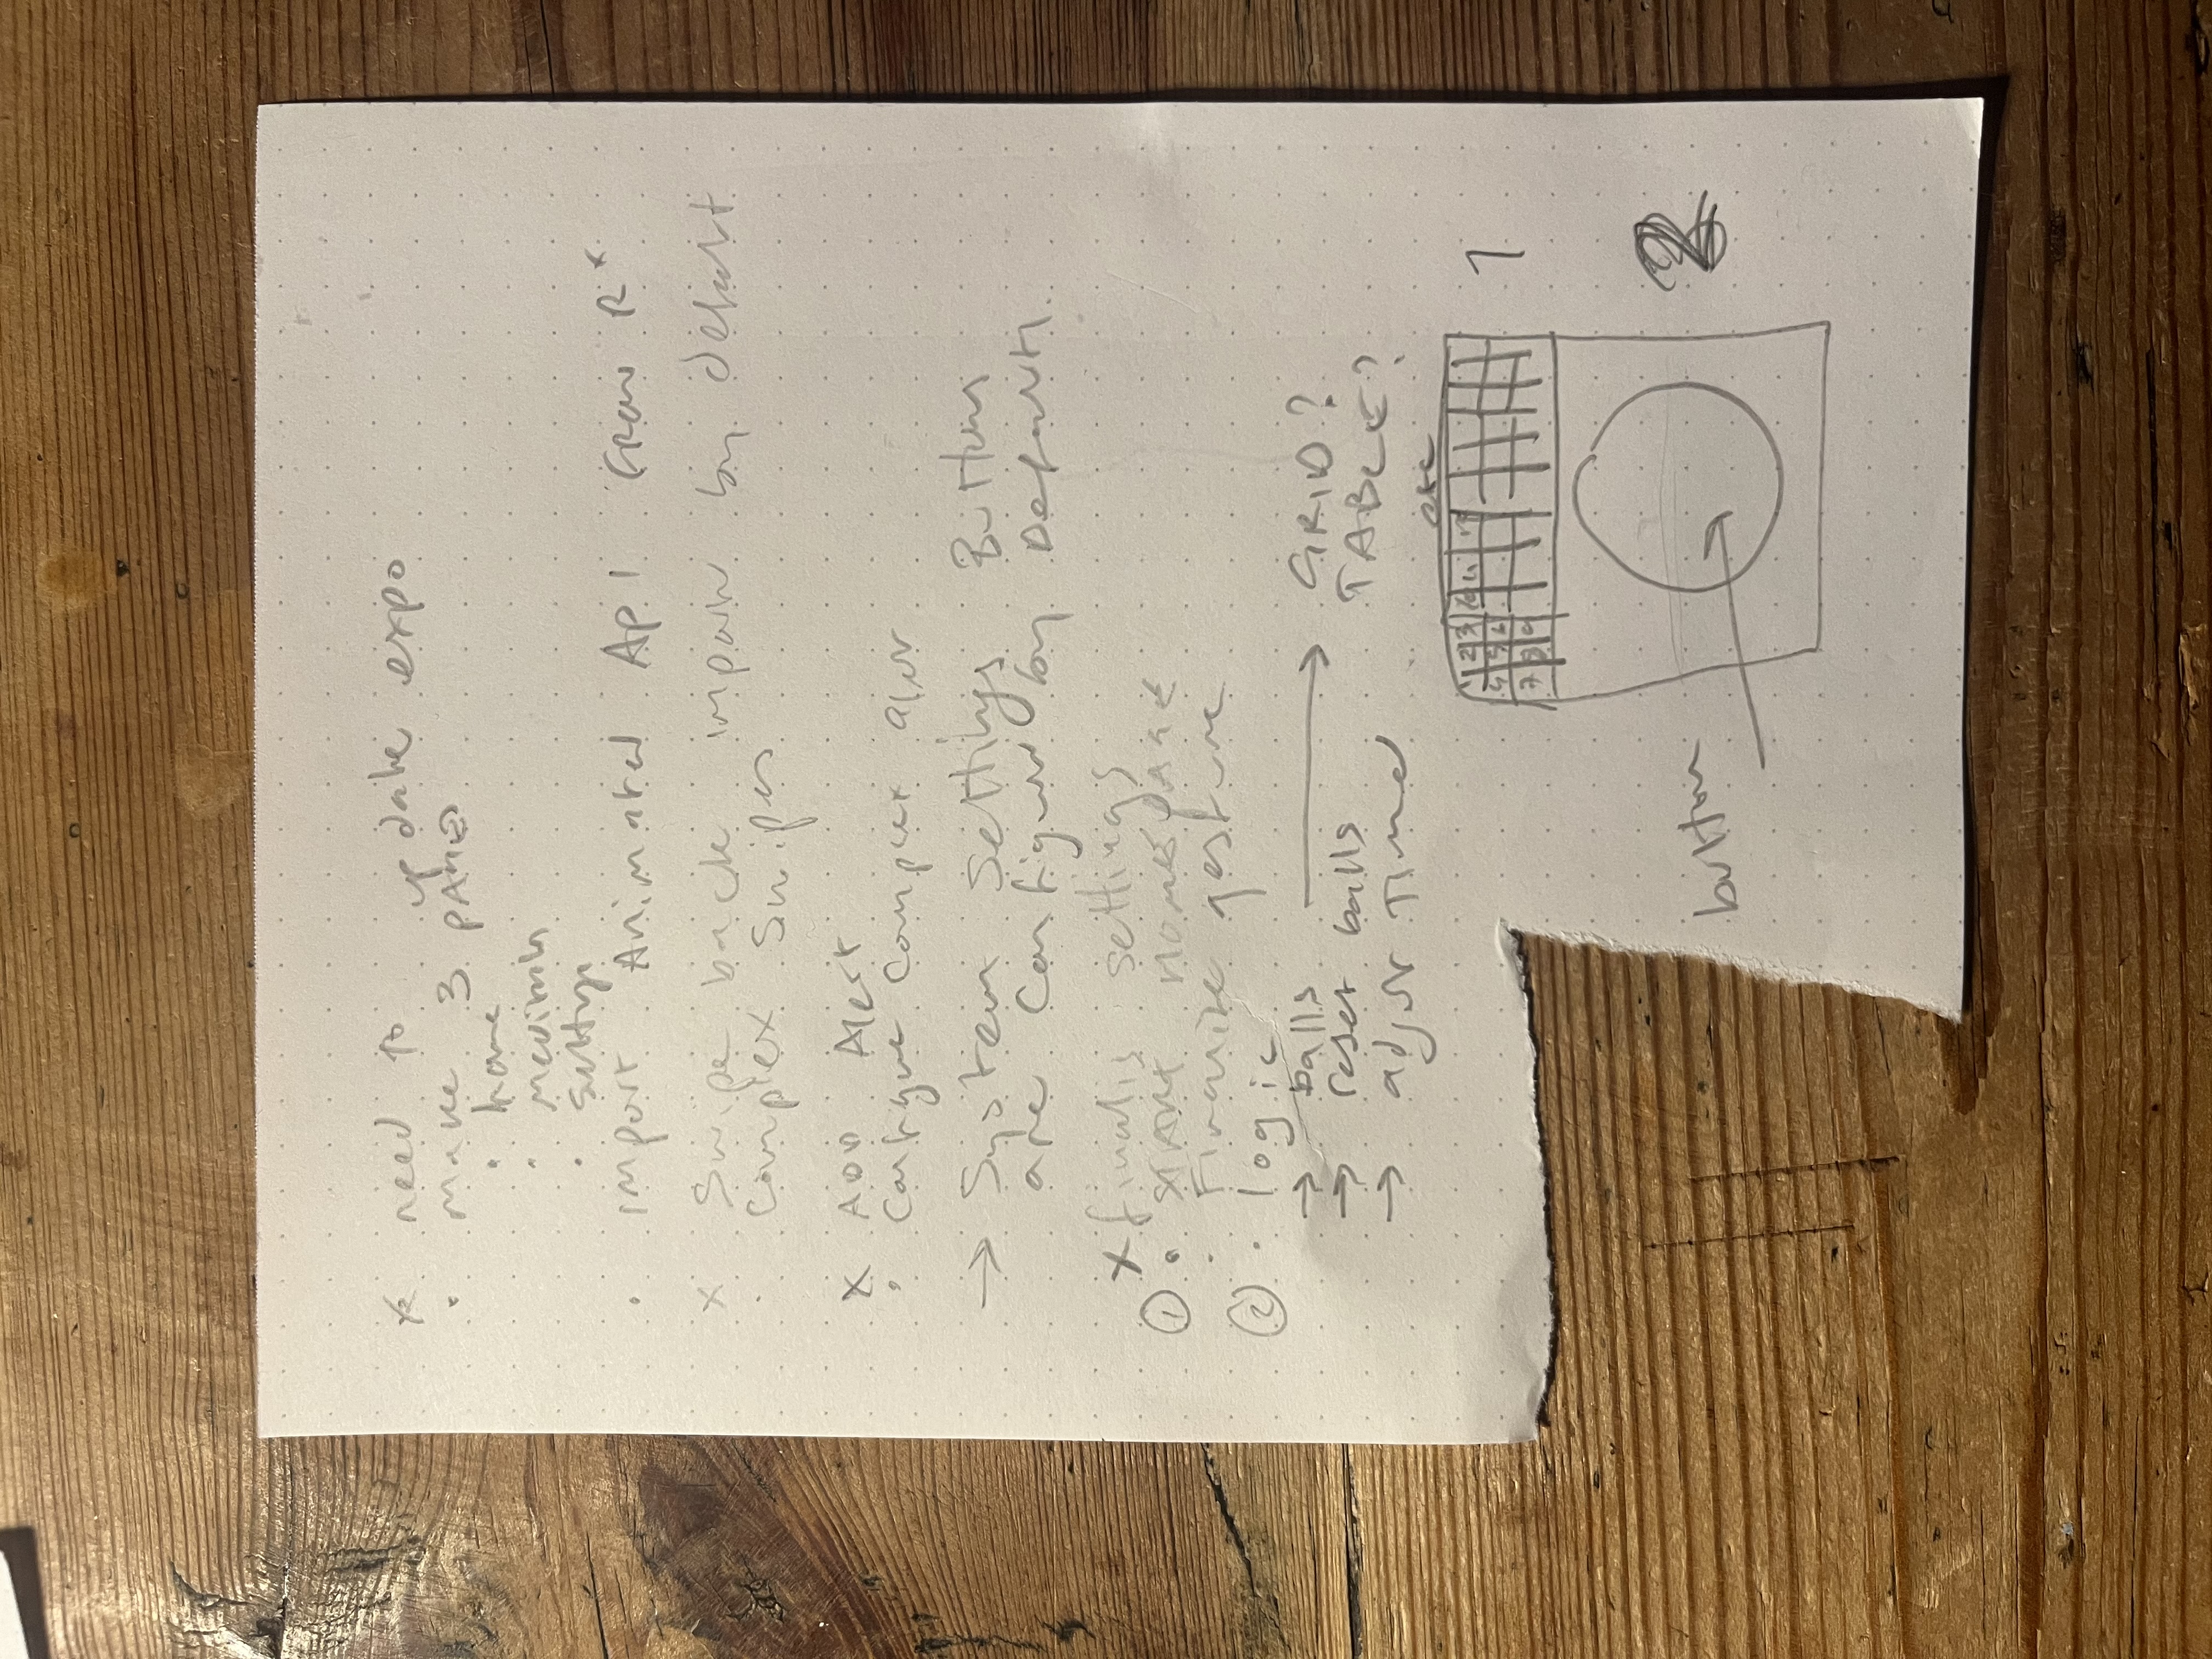 x need to update expo
· make 3 pages
· home
·
· settings
· import Animated API from R*
x Swipe back import by default
· Complex Swipes
x ADD Alert
· Configure Complex alert
→ System Settings Buttons
are Configured by Default.
x finalis settings
① · START HOMESPACE
· Finalize gesture
② · logic
→ balls → GRID?
→ reset balls TABLE?
→ adjust Timed
etc
1 2 3 10 11 12
4 5 6
7 8 9
1
button
2